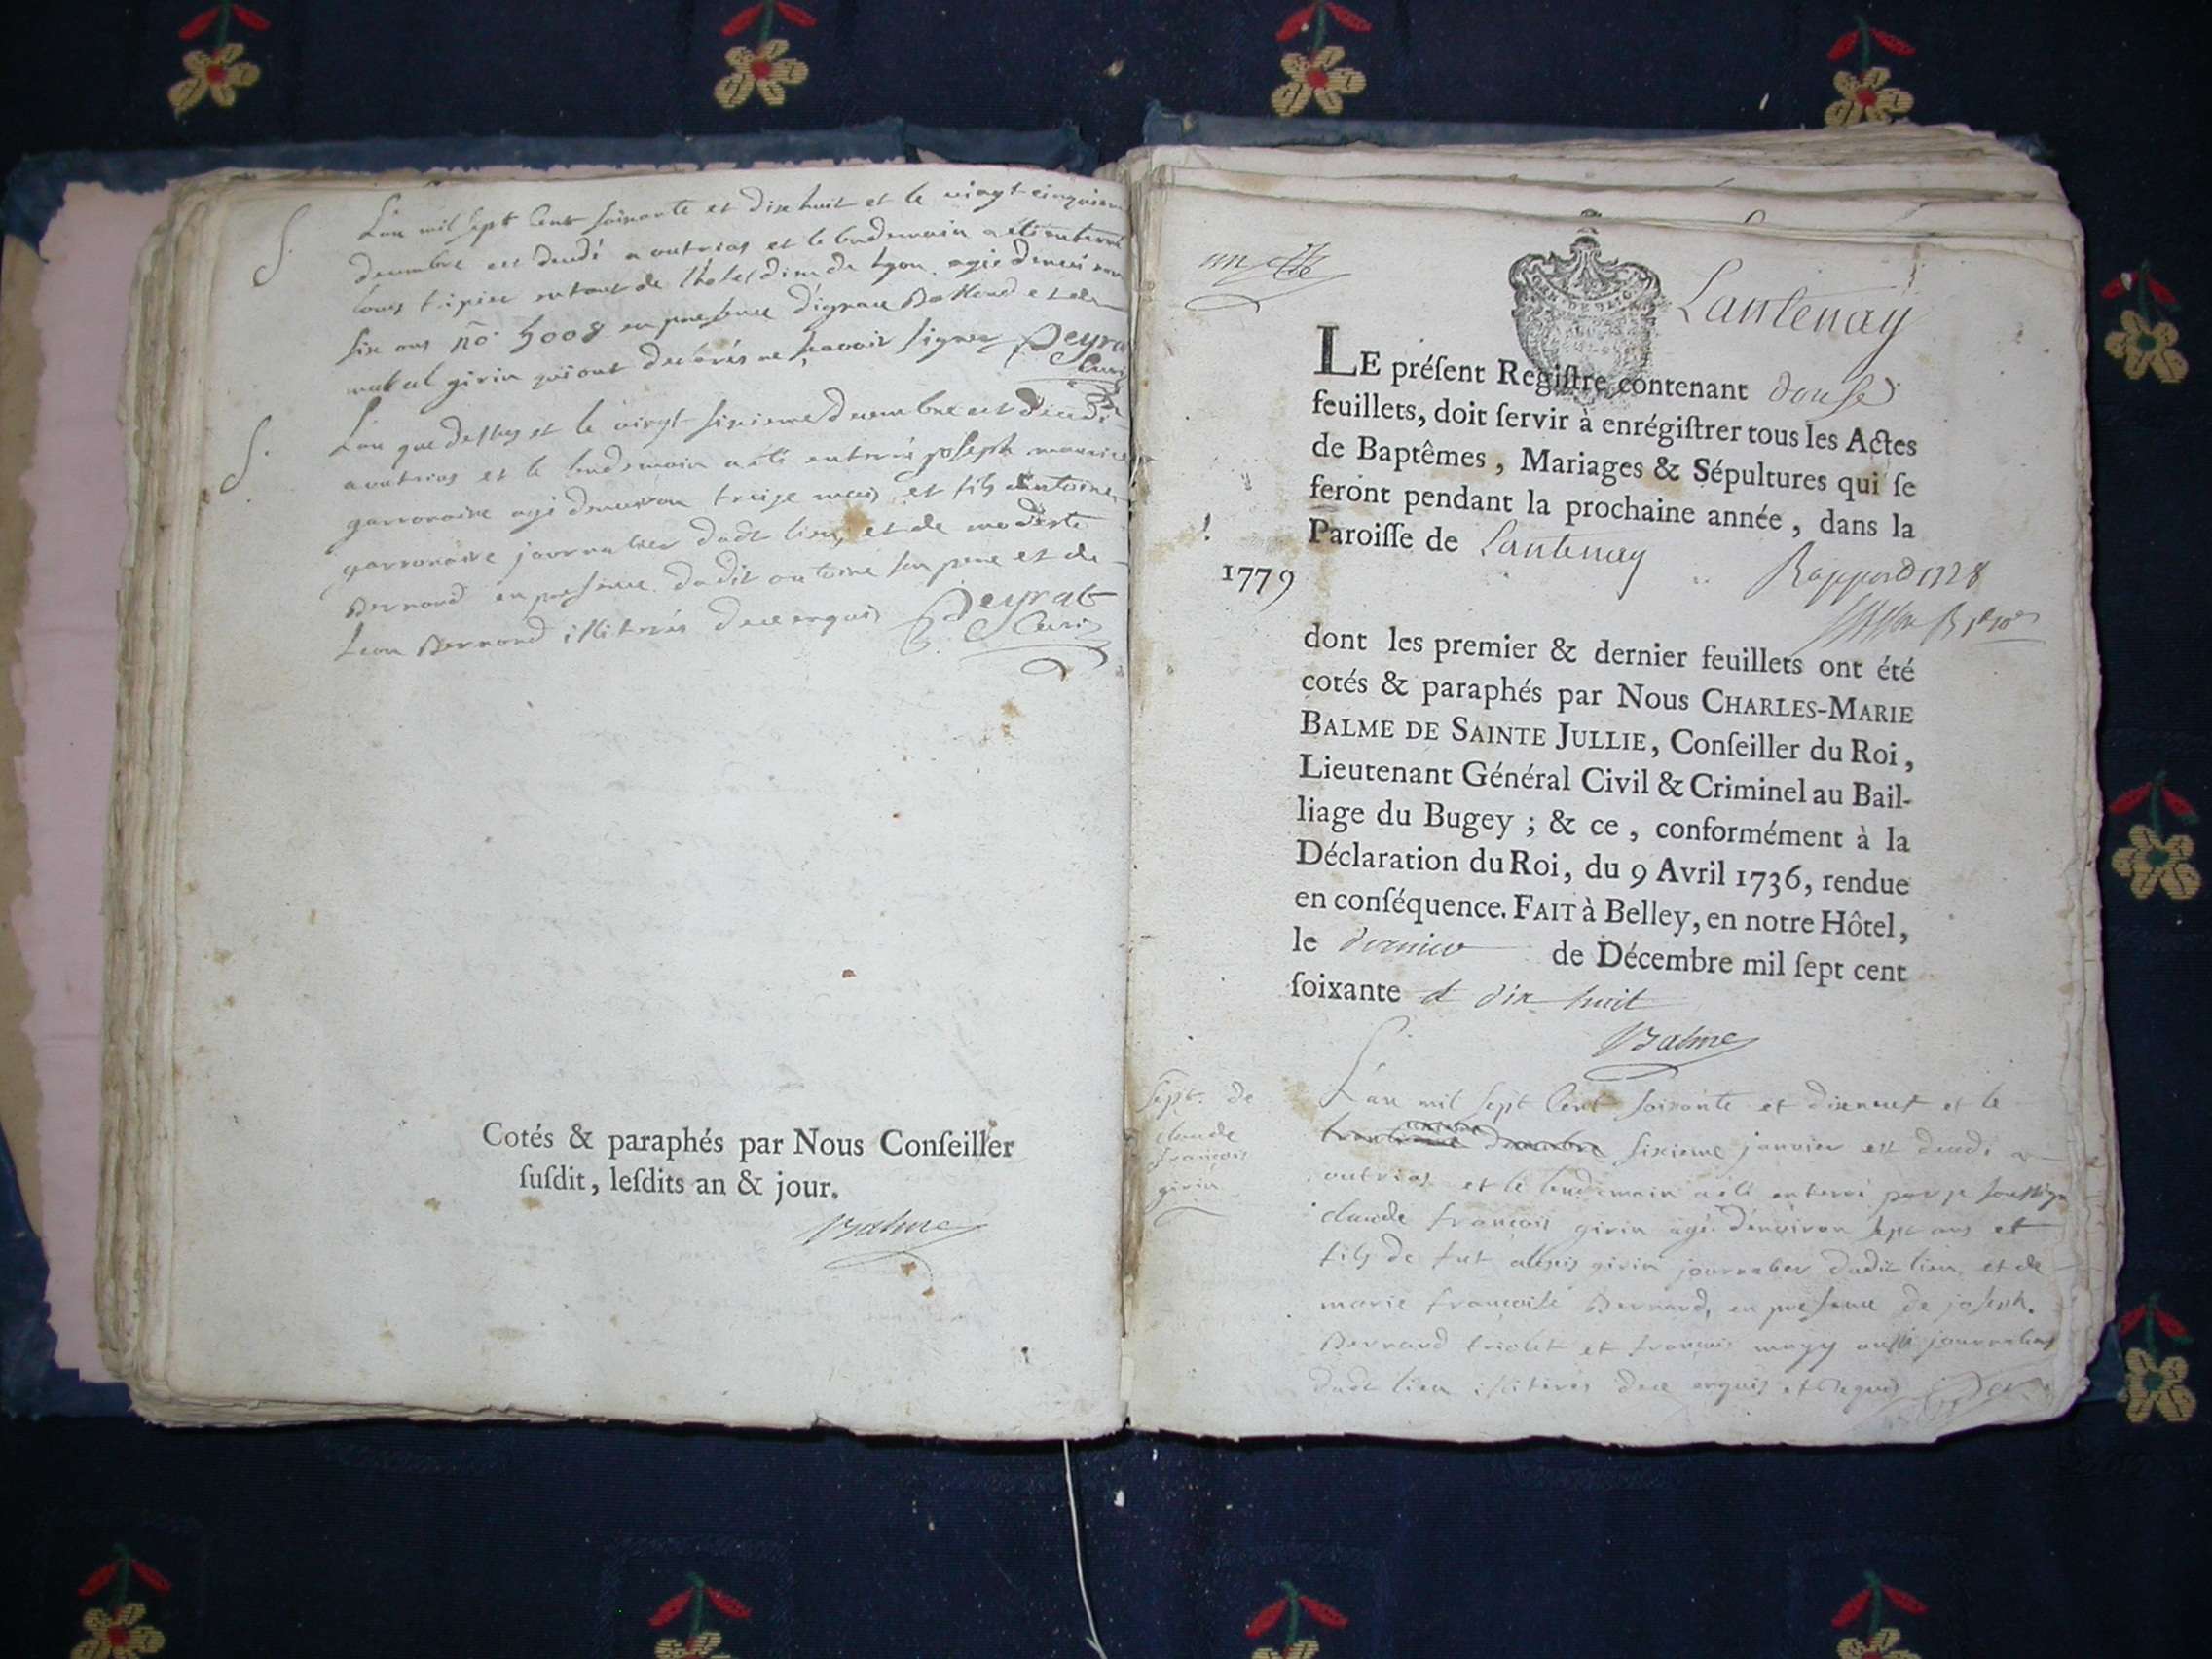 S.
L'an mil sept cent soixante et dixhuit et le vingt cinquieme
decembre est decedé a outrias et le lendemain a été enterré
louis tixier enfant de l'hotel dieu de lyon agé d'environ
six ans no 5008 en presence d'ignace et de
girin qui ont declarés ne scavoir signer Peyra
Curé
S.
L'an que dessus et le vingt sixieme decembre est decedé
a outrias et le lendemain a été enterré joseph maurice
garronaire agé d'environ treize mois et fils d'antoine
garronaire journalier dudt lieu, et de modeste
Bernard en presence dudit antoine son pere et de
Leon Bernard illiterés de ce enquis Peyrat
Curé
Cotés & paraphés par Nous Conſeiller
ſuſdit, leſdits an & jour.
Balme
un
Lantenay
LE préſent Regiſtre contenant douse
feuillets, doit ſervir à enrégiſtrer tous les Actes
de Baptêmes, Mariages & Sépultures qui ſe
feront pendant la prochaine année, dans la
Paroiſſe de Lantenay
1779
Rapport 1778
dont les premier & dernier feuillets ont été
cotés & paraphés par Nous CHARLES-MARIE
BALME DE SAINTE JULLIE, Conſeiller du Roi,
Lieutenant Général Civil & Criminel au Bail-
liage du Bugey ; & ce, conformément à la
Déclaration du Roi, du 9 Avril 1736, rendue
en conſéquence. FAIT à Belley, en notre Hôtel,
le dernier de Décembre mil ſept cent
ſoixante et dix huit
Balme
Sept. de
claude
françois
girin
L'an mil sept cent soixante et dixneuf et le
sixieme janvier est decedé a
outrias et le lendemain a été enterré par je soussigné
claude françois girin agé d'environ sept ans et
fils de fut alexis girin journalier dudit lieu et de
marie françoise Bernard, en presence de joseph
Bernard triolet et françois mugy aussi journaliers
dudt lieu illiterés de ce enquis et requis